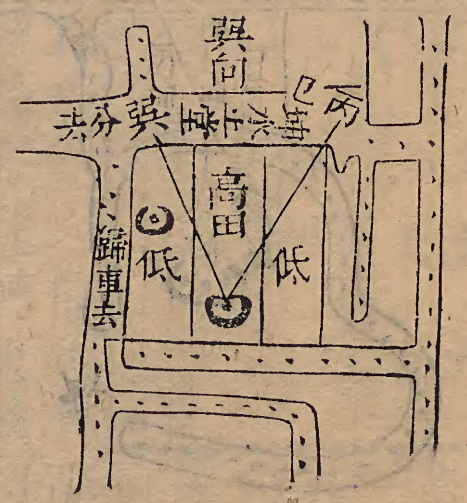 巽向
丙
巳
坤水上堂至巽分去
高田
低
低
歸車去